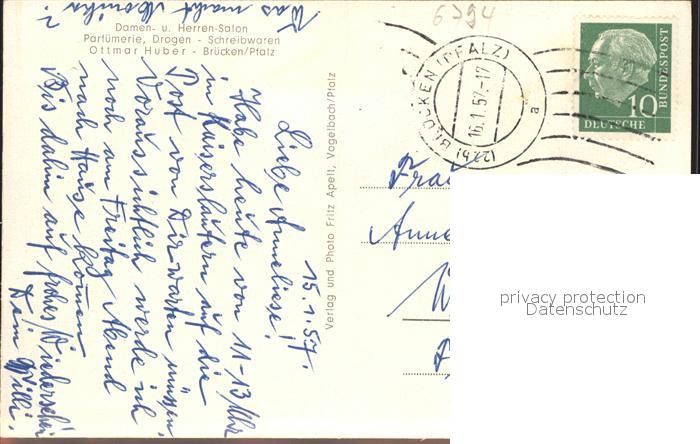 Damen- u. Herren-Salon
Parfümerie, Drogen - Schreibwaren
Ottmar Huber - Brücken/Pfalz
15.1.57.
Liebe Anneliese!
Habe heute von 11-13 Uhr
in Kaiserslautern auf die
Post von Dir warten müssen.
Voraussichtlich werde ich
noch am Freitag Abend
nach Hause kommen
Bis dahin auf frohes Wiedersehen
Dein Willi.
Was macht Monika?
Verlag und Photo Fritz Apelt, Vogelbach/Pfalz
6394
(22b) BRÜCKEN (PFALZ)
16.1.57.-17
a
10
DEUTSCHE BUNDESPOST
Frau
Anne
privacy protection
Datenschutz